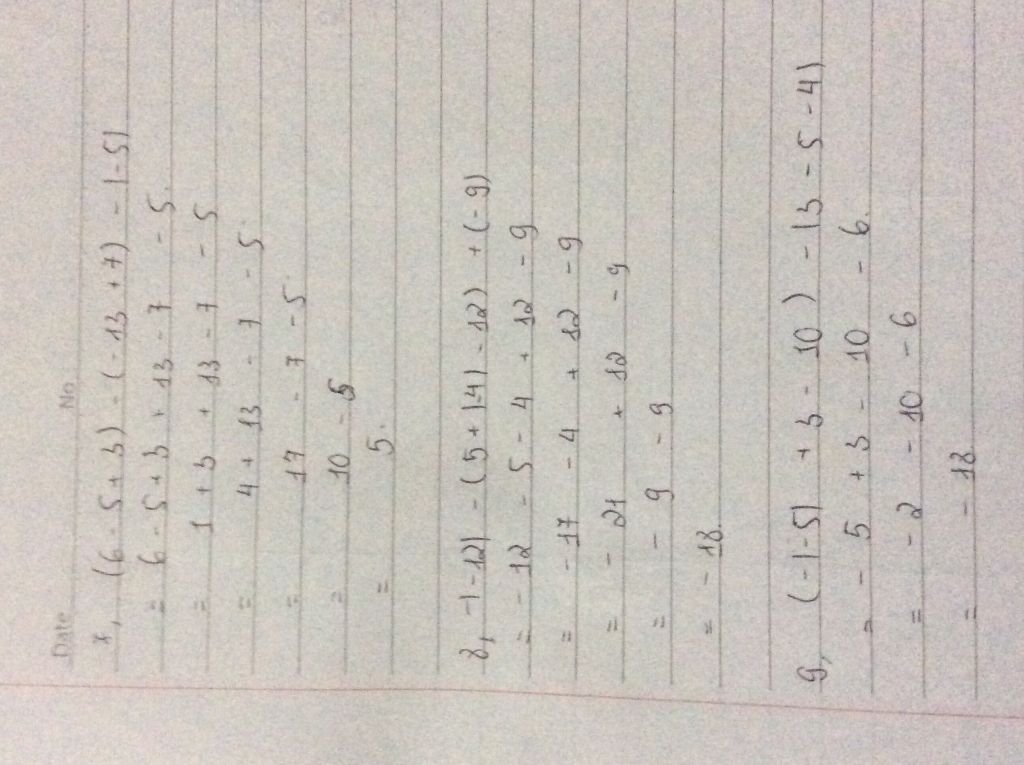 Date No
7, (6 - 5 + 3) - (-13 + 7) - |-5|
= 6 - 5 + 3 + 13 - 7 - 5.
= 1 + 3 + 13 - 7 - 5
= 4 + 13 - 7 - 5
= 17 - 7 - 5
= 10 - 5
= 5.
8, -|-12| - (5 + |-4| - 12) + (-9)
= - 12 - 5 - 4 + 12 - 9
= - 17 - 4 + 12 - 9
= - 21 + 12 - 9
= - 9 - 9
= - 18.
9, (-|-5| + 3 - 10) - |3 - 5 - 4|
= - 5 + 3 - 10 - 6.
= - 2 - 10 - 6
= - 18